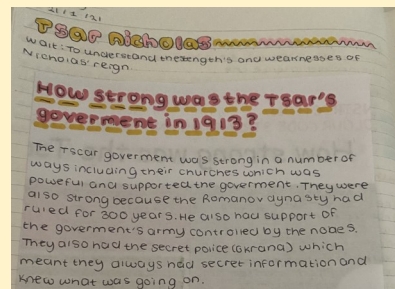 21/1/21
Tsar Nicholas
Walt: To understand the strength's and weaknesses of
Nicholas' reign.
How strong was the Tsar's
goverment in 1913?
The Tscar goverment was strong in a number of
ways including their churches which was
powerful and supported the goverment. They were
also strong because the Romanov dynasty had
ruled for 300 years. He also had support of
the goverment's army controlled by the nobles.
They also had the secret police (Okrana) which
meant they always had secret information and
knew what was going on.